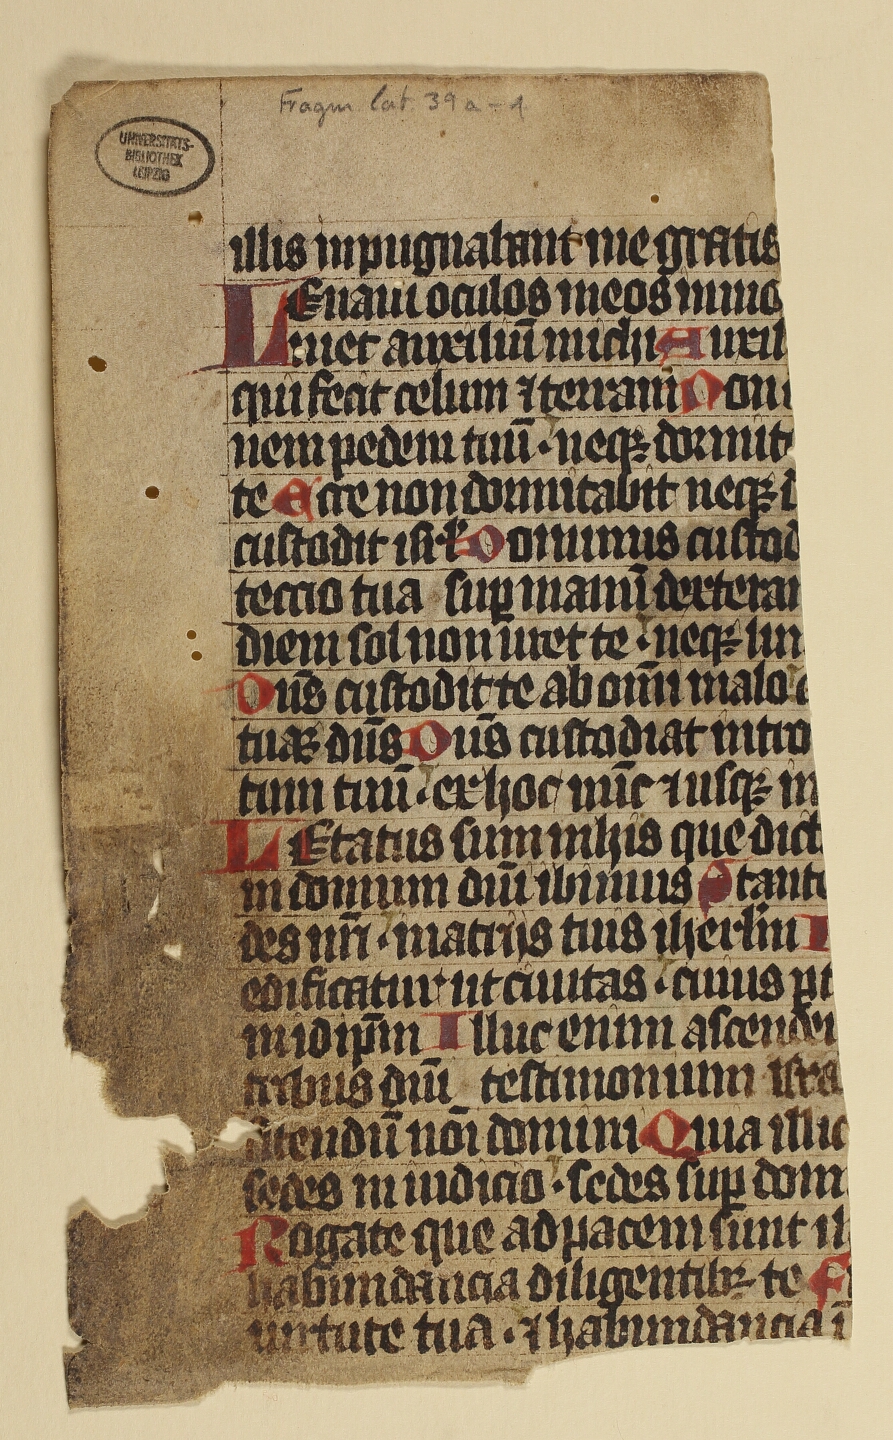 Fragm. lat. 39 a-d
UNIVERSITÄTS-
BIBLIOTHEK
LEIPZIG
illis inpugnabant me gratis
LEuaui oculos meos in mo
ueiet auxiliū michi Auxil
qui fecit celum ⁊ terram Domi
uem pedem tuū · neqꝫ dormit
te Ecce non dormitabit neqꝫ d
custodit isrl Dominus custod
tectio tua sup manū dexteram
diem sol non uret te · neqꝫ lun
Dn̄s custodit te ab om̄i malo c
tuaꝫ dn̄s Dn̄s custodiat intro
tum tuū · ex hoc nūc ⁊ usqꝫ in
LEtatus sum in his que dict
in domum dn̄i ibimus Stante
des nr̄i · in atrijs tuis iherl̄m I
edificatur ut ciuitas · cuius pt
in idip̄m Illuc enim ascender
tribus dn̄i testimonium isra
fitendū nōi domini Quia illic
sedes in iudicio · sedes sup dom
Rogate que ad pacem sunt ih
habundancia diligentibꝫ te F
uirtute tua · ⁊ habundancia ī